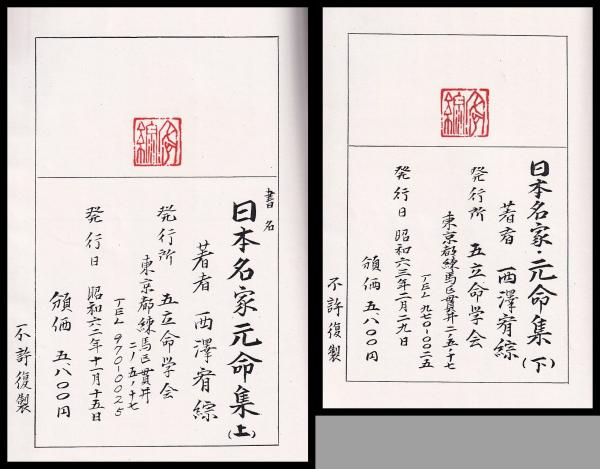 書名
日本名家元命集(上)
著者 西澤宥綜
発行所 五立命学会
東京都練馬区貫井
二ノ五ノ十七
TEL 970-0025
発行日 昭和六二年十一月十五日
頒価 五、八〇〇円
不許復製
日本名家・元命集(下)
著者 西澤宥綜
発行所 五立命学会
東京都練馬区貫井二ノ五ノ十七
TEL 九七〇-〇〇二五
発行日 昭和六三年二月二九日
頒価 五、八〇〇円
不許復製